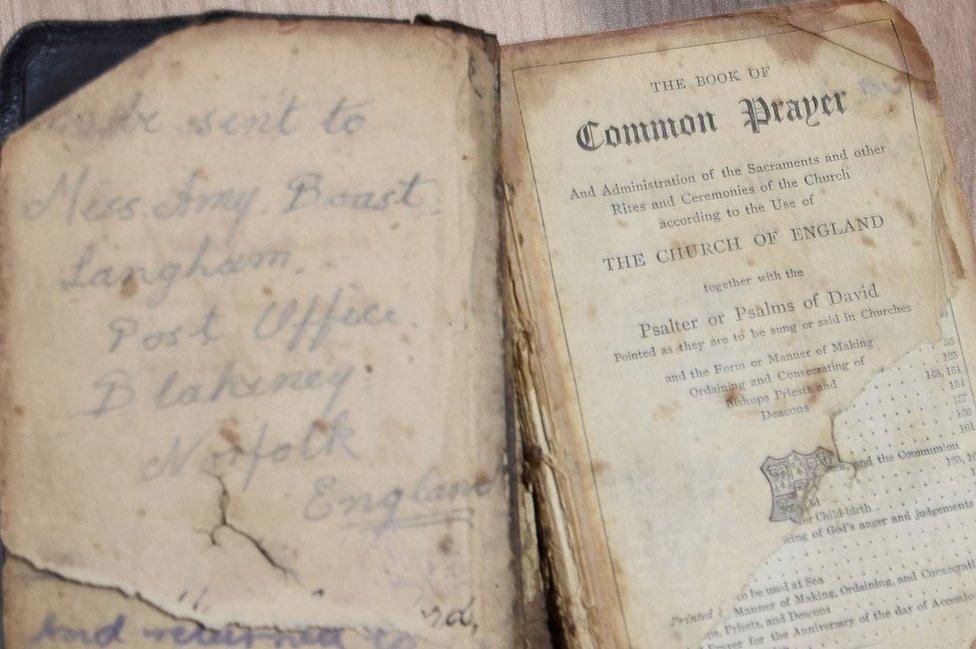 be sent to
Miss Amy Boast.
Langham.
Post Office.
Blakeney.
Norfolk
England
nd,
And returned to
THE BOOK OF
Common Prayer
And Administration of the Sacraments and other
Rites and Ceremonies of the Church
according to the Use of
THE CHURCH OF ENGLAND
together with the
Psalter or Psalms of David
Pointed as they are to be sung or said in Churches
and the Form or Manner of Making
Ordaining and Consecrating of
Bishops Priests and
Deacons
and the Communion
er Child-birth
cing of God's anger and judgements
to be used at Sea
Manner of Making, Ordaining, and Consecrati
Printed
Priests, and Deacons
Prayer for the Anniversary of the day of Accession